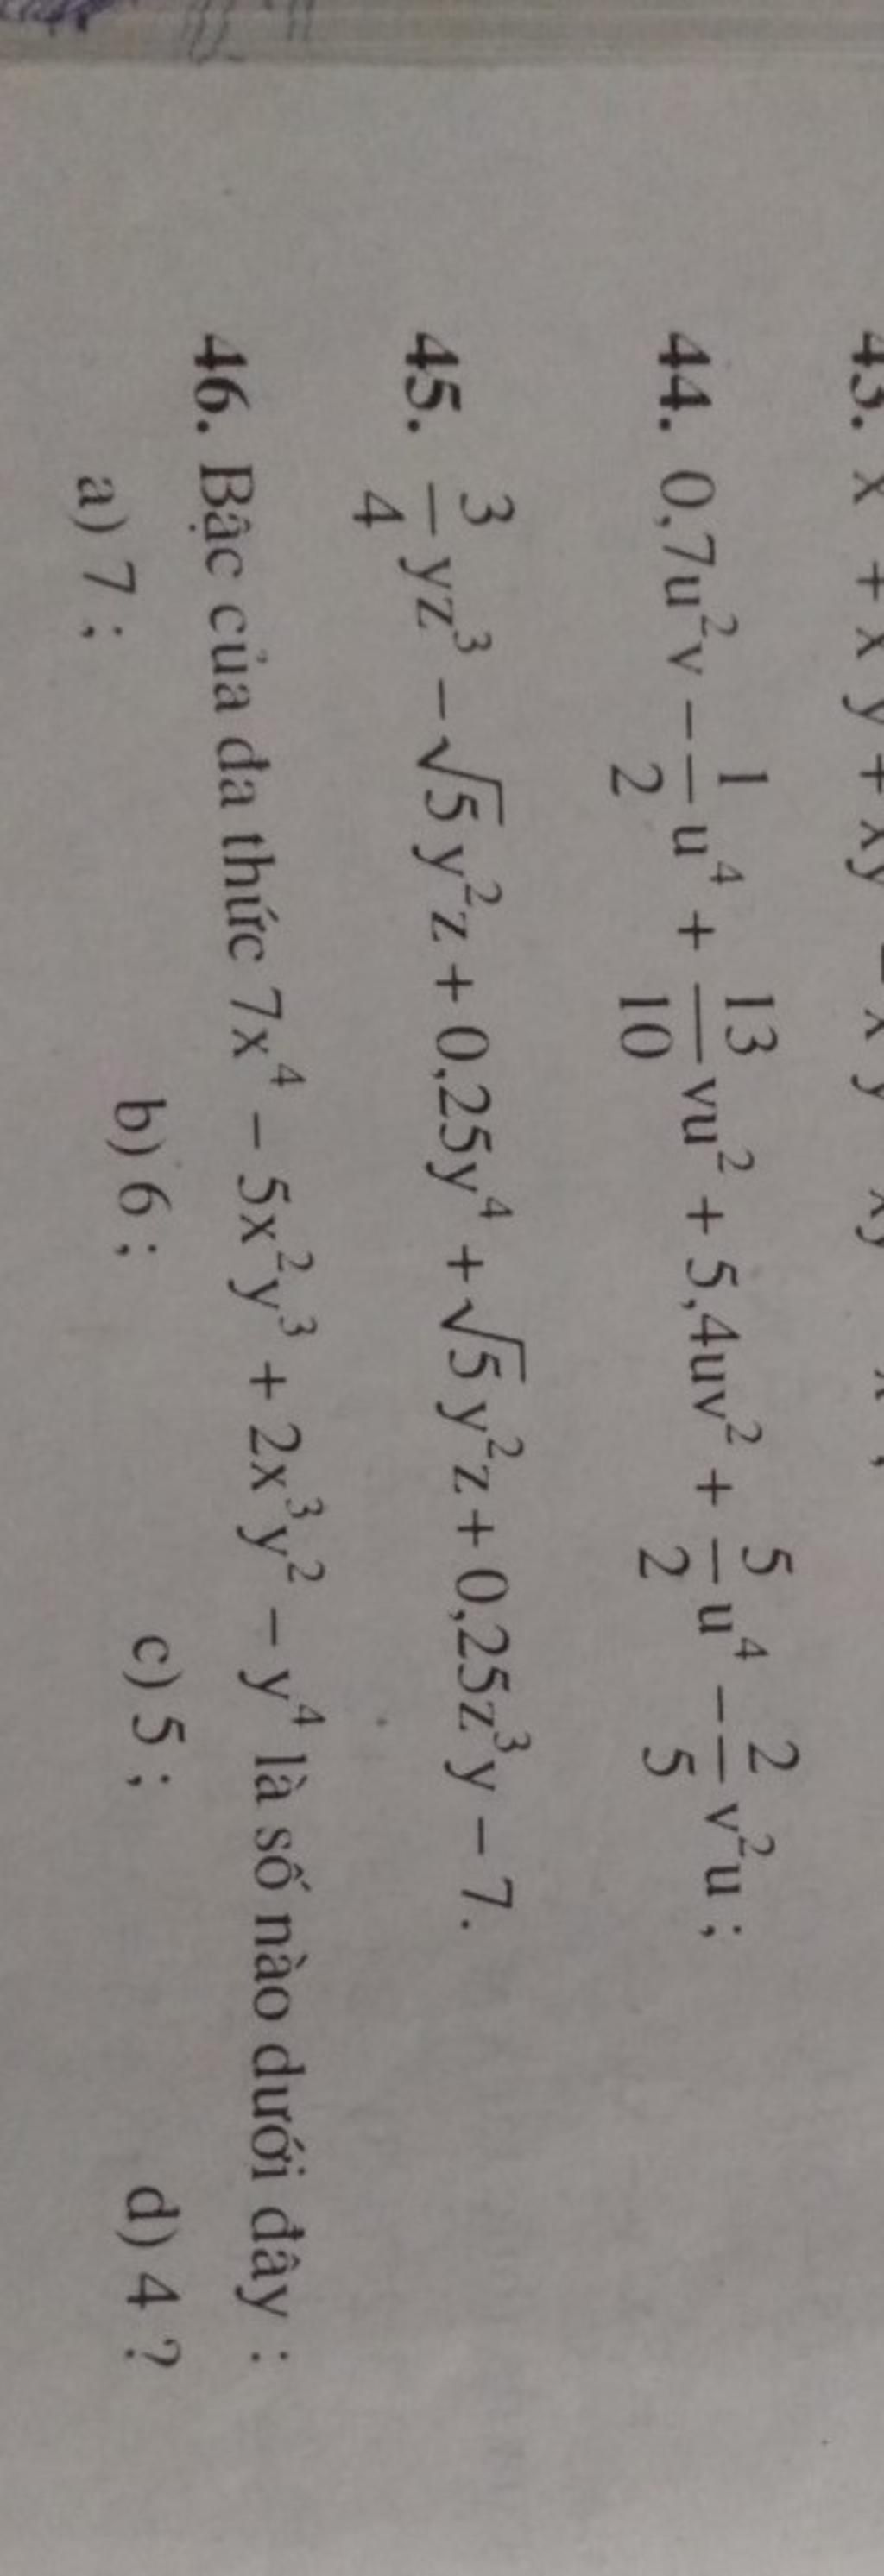 44. 0,7u²v − 1/2 u⁴ + 13/10 vu² + 5,4uv² + 5/2 u⁴ − 2/5 v²u ;
45. 3/4 yz³ − √5 y²z + 0,25y⁴ + √5 y²z + 0,25z³y − 7.
46. Bậc của đa thức 7x⁴ − 5x²y³ + 2x³y² − y⁴ là số nào dưới đây :
a) 7 ; b) 6 ; c) 5 ; d) 4 ?